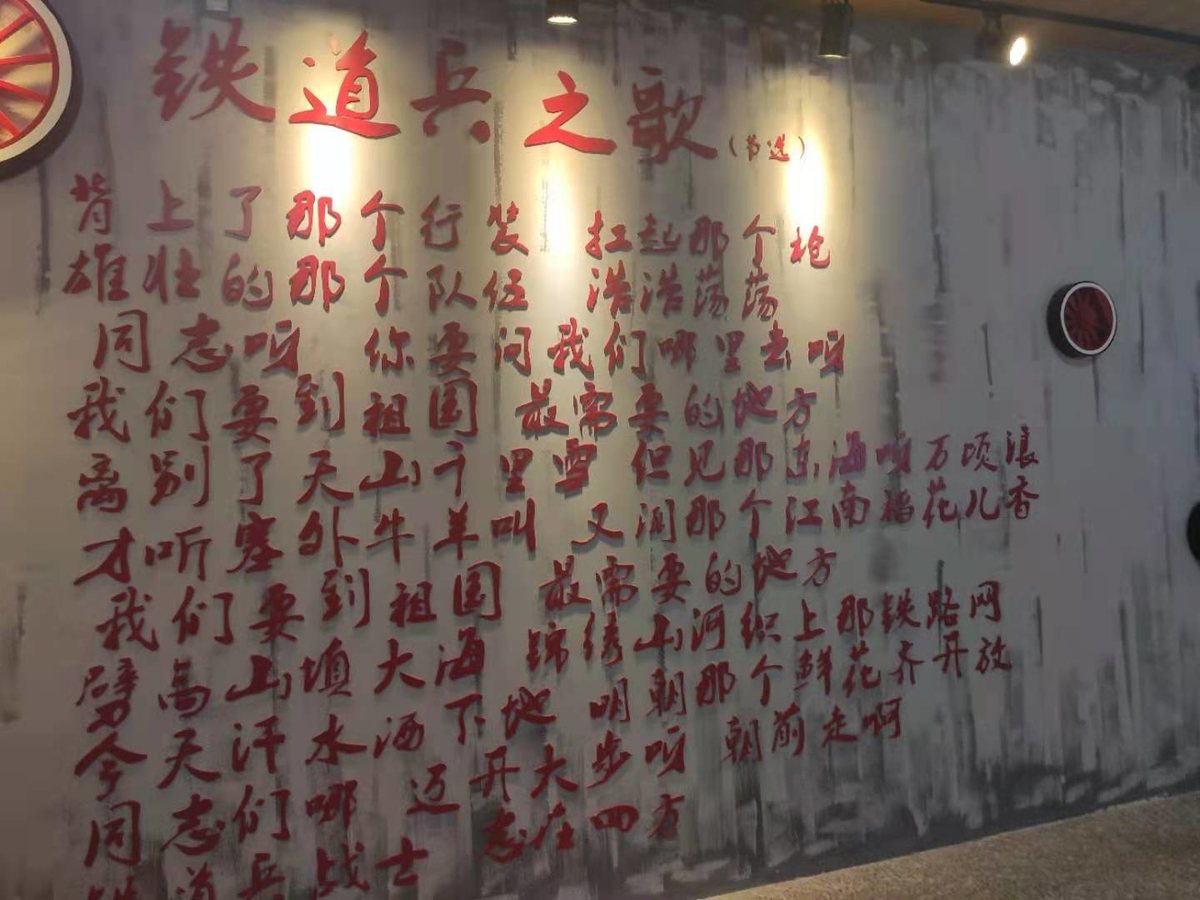 铁道兵之歌（节选）
背上了那个行装 扛起那个枪
雄壮的那个队伍 浩浩荡荡
同志呀 你要问我们哪里去呀
我们要到祖国 最需要的地方
离别了天山千里雪 但见那东海呀万顷浪
才听塞外牛羊叫 又闻那个江南稻花儿香
我们要到祖国 最需要的地方
劈高山填大海 锦绣山河织上那铁路网
今天汗水洒下地 明朝那个鲜花齐开放
同志们哪 迈开大步呀 朝前走啊
铁道兵战士 志在四方